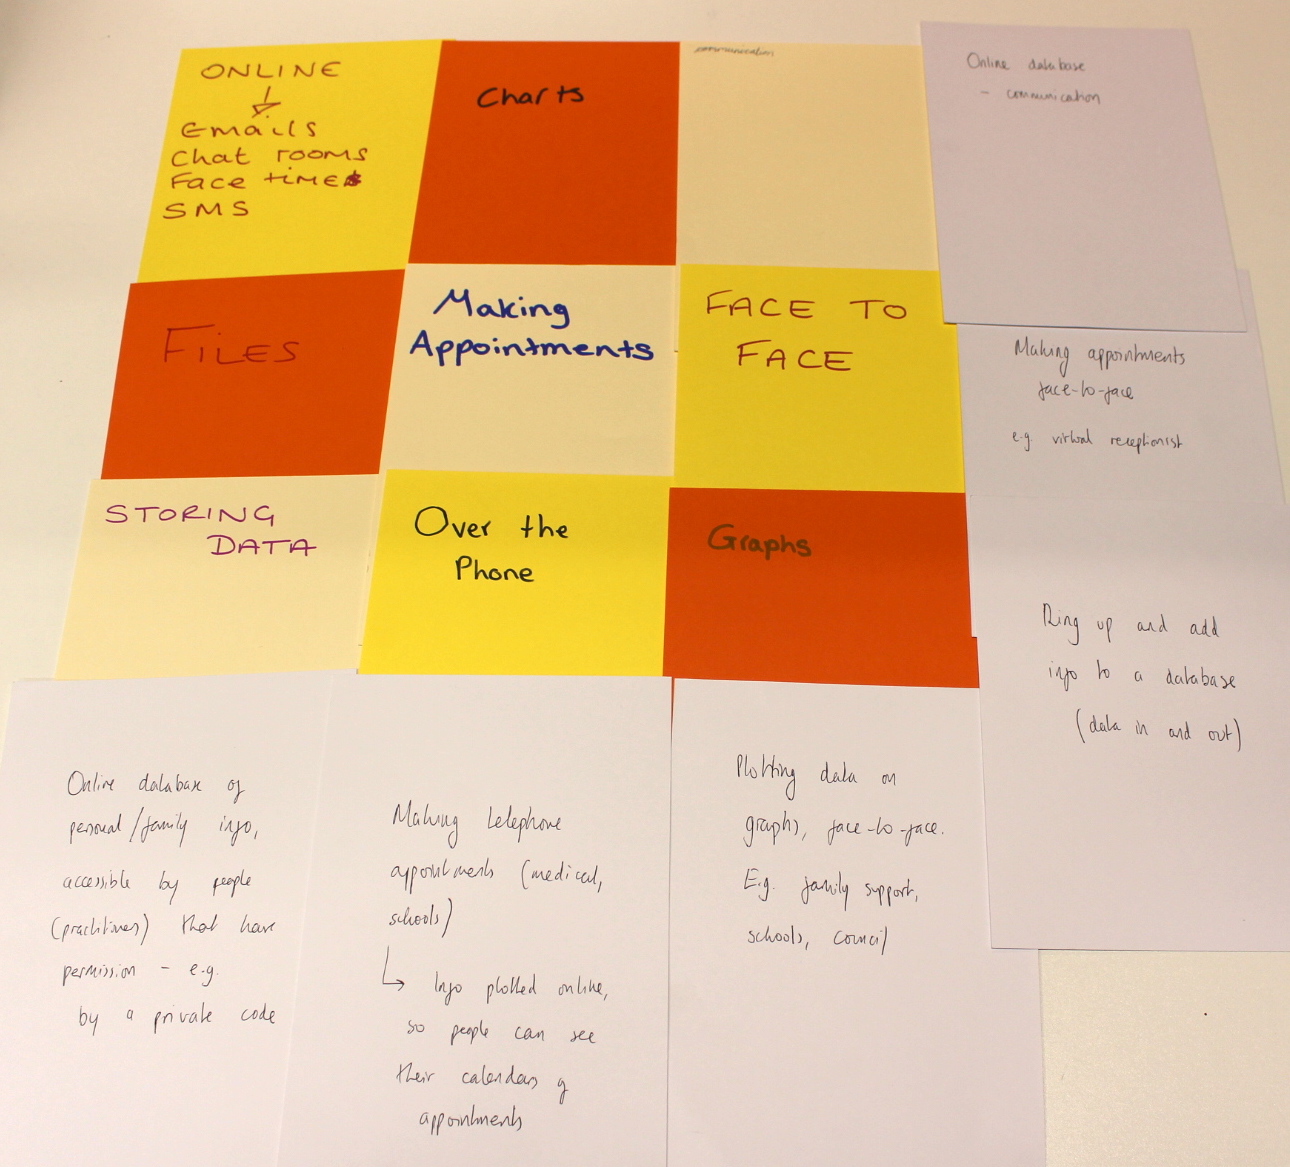 ONLINE
Emails
Chat rooms
Face times
SMS
Charts
communication
Online database
- communication
FILES
Making
Appointments
FACE TO
FACE
Making appointments
face-to-face
e.g. virtual receptionist
STORING
DATA
Over the
Phone
Graphs
Ring up and add
info to a database
(data in and out)
Online database of
personal/family info,
accessible by people
(practitioners) that have
permission - e.g.
by a private code
Making telephone
appointments (medical,
schools)
Info plotted online,
so people can see
their calendars of
appointments
Plotting data on
graphs, face-to-face.
E.g. family support,
schools, council